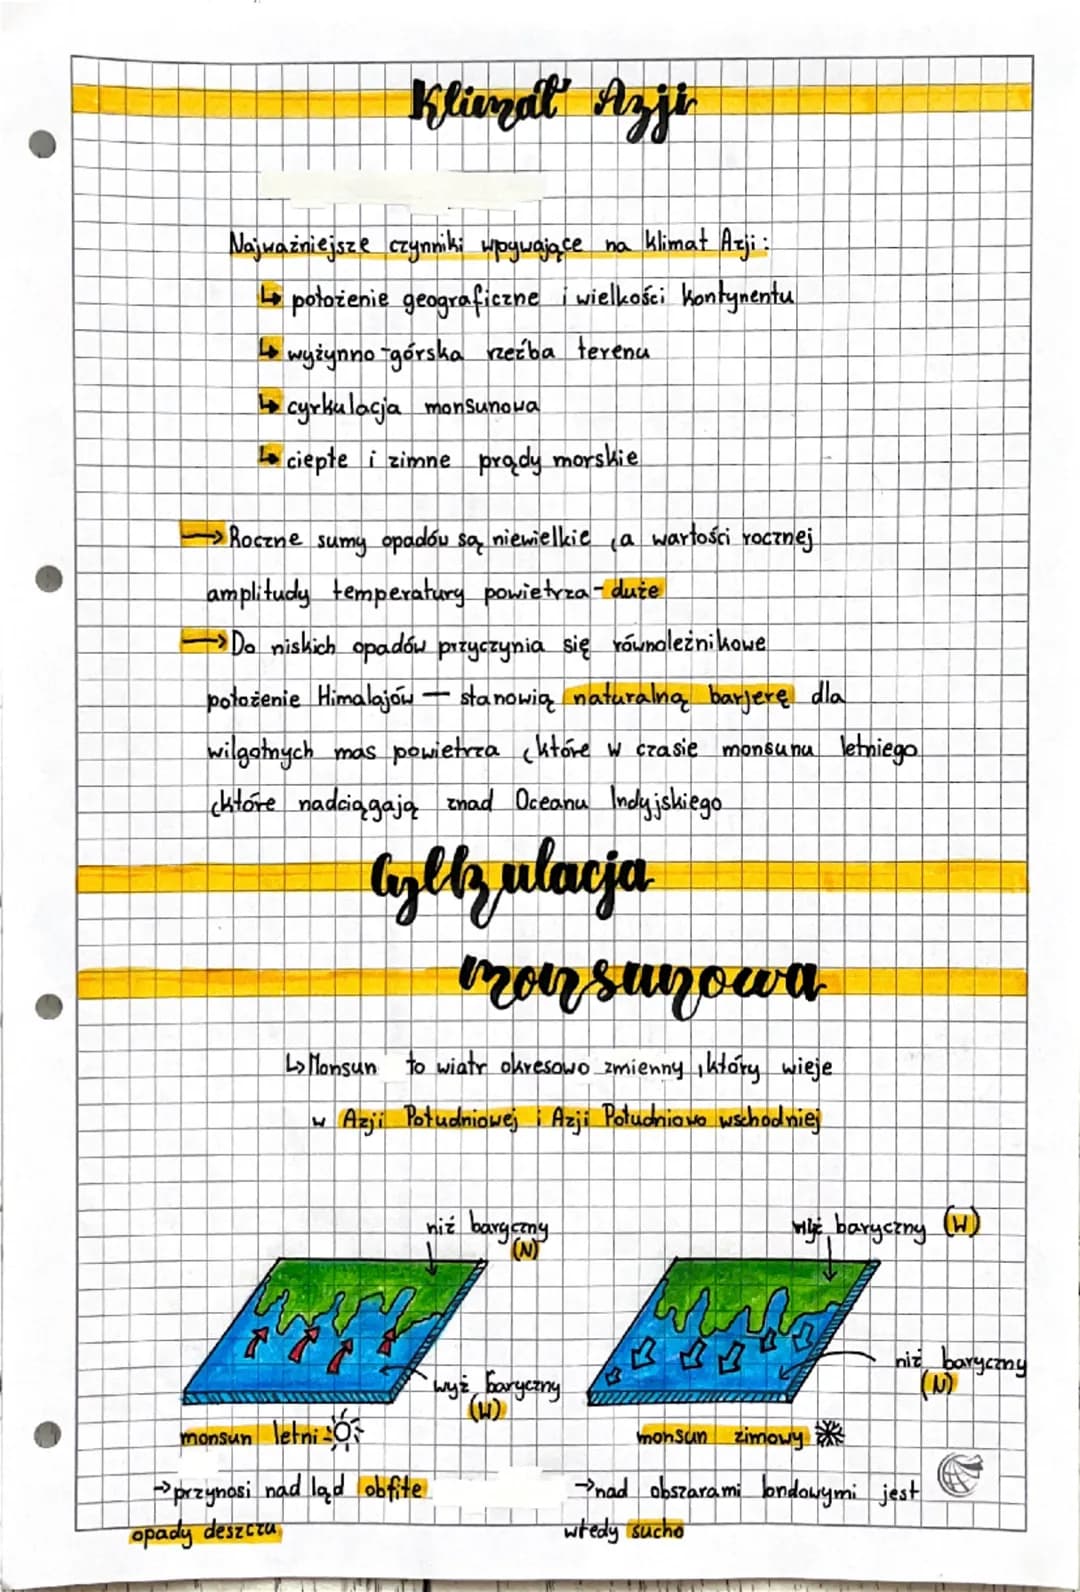 Klimat Azji
Najważniejsze czynniki wpywające na klimat Azji:
↳ położenie geograficzne i wielkości kontynentu
↳ wyżynno-górska rzeźba terenu
↳ cyrkulacja monsunowa
↳ ciepłe i zimne prądy morskie
→ Roczne sumy opadów są niewielkie, a wartości rocznej
amplitudy temperatury powietrza - duże
→ Do niskich opadów przyczynia się równoleżnikowe
położenie Himalajów — stanowią naturalną barjerę dla
wilgotnych mas powietrza, które w czasie monsunu letniego
,które nadciągają znad Oceanu Indyjskiego
Cyrkulacja
monsunowa
↳ Monsun to wiatr okresowo zmienny, który wieje
w Azji Południowej i Azji Południowo wschodniej
niż baryczny
(N)
wyż baryczny (W)
wyż baryczny
(W)
niż baryczny
(N)
monsun letni
monsun zimowy
→ przynosi nad ląd obfite
opady deszczu
→ nad obszarami londowymi jest
wtedy sucho